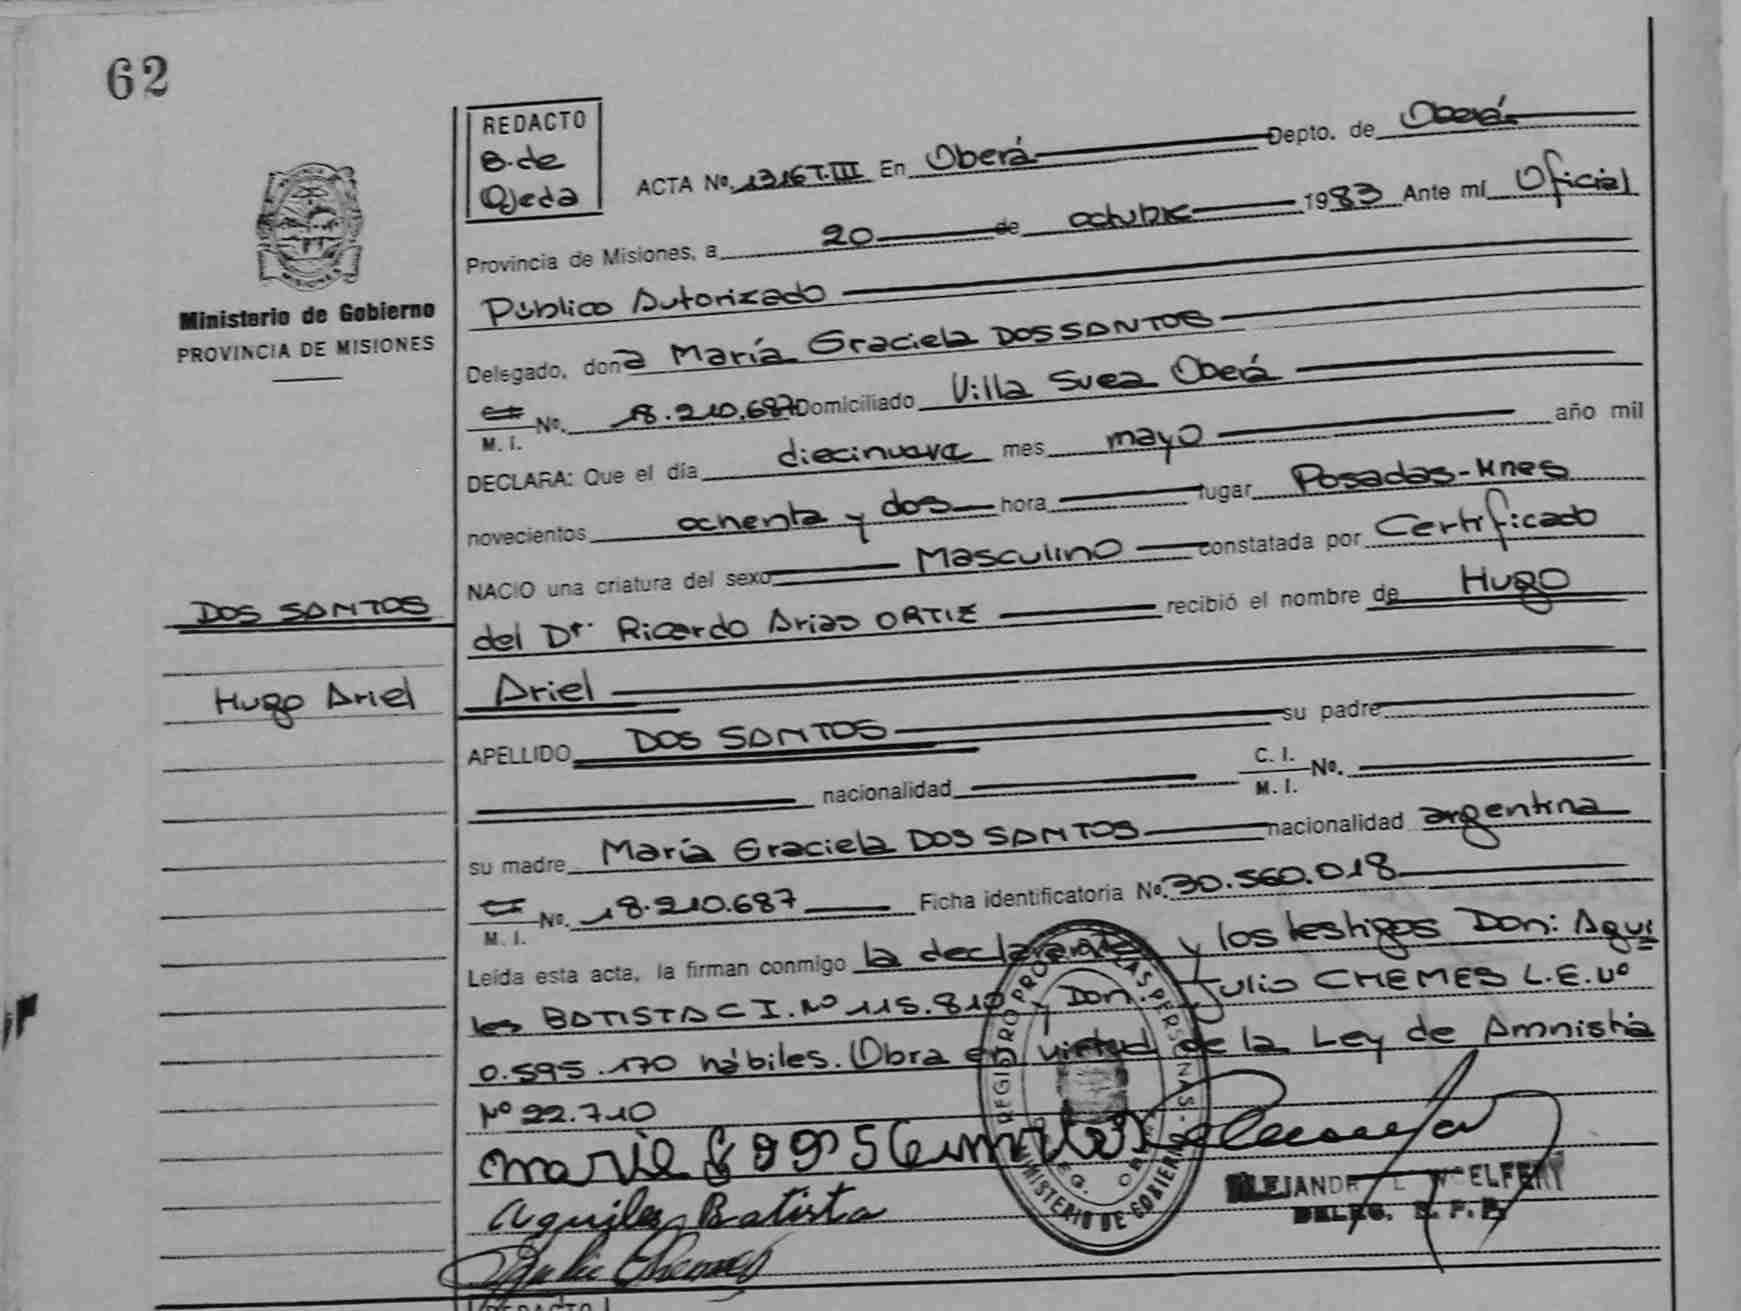 62
REDACTO
B. de
Ojeda
ACTA No. 1316 T.III En Oberá Depto. de Oberá
Provincia de Misiones, a 20 de octubre 1983 Ante mí Oficial
Público Autorizado
Ministerio de Gobierno
PROVINCIA DE MISIONES
Delegado, doña María Graciela DOS SANTOS
M. I. No. 18.210.687 Domiciliado Villa Svea Oberá
DECLARA: Que el día diecinueve mes mayo año mil
novecientos ochenta y dos hora lugar Posadas-Mnes
NACIO una criatura del sexo Masculino constatada por Certificado
DOS SANTOS
del Dr. Ricardo Arias ORTIZ recibió el nombre de Hugo
Hugo Ariel
Ariel
APELLIDO DOS SANTOS su padre
nacionalidad C. I. M. I. No.
su madre María Graciela DOS SANTOS nacionalidad argentina
M. I. No. 18.210.687 Ficha identificatoria No. 30.560.018
Leída esta acta, la firman conmigo la declarante y los testigos Don: Aqui
les BATISTA C I. Nº 115.810 y Don: Julio CHEMES L.E. Nº
0.595.170 hábiles. Obra en virtud de la Ley de Amnistía
Nº 22.710
Aquiles Batista
Julio Chemes
MINISTERIO DE GOBIERNO
REDACTO